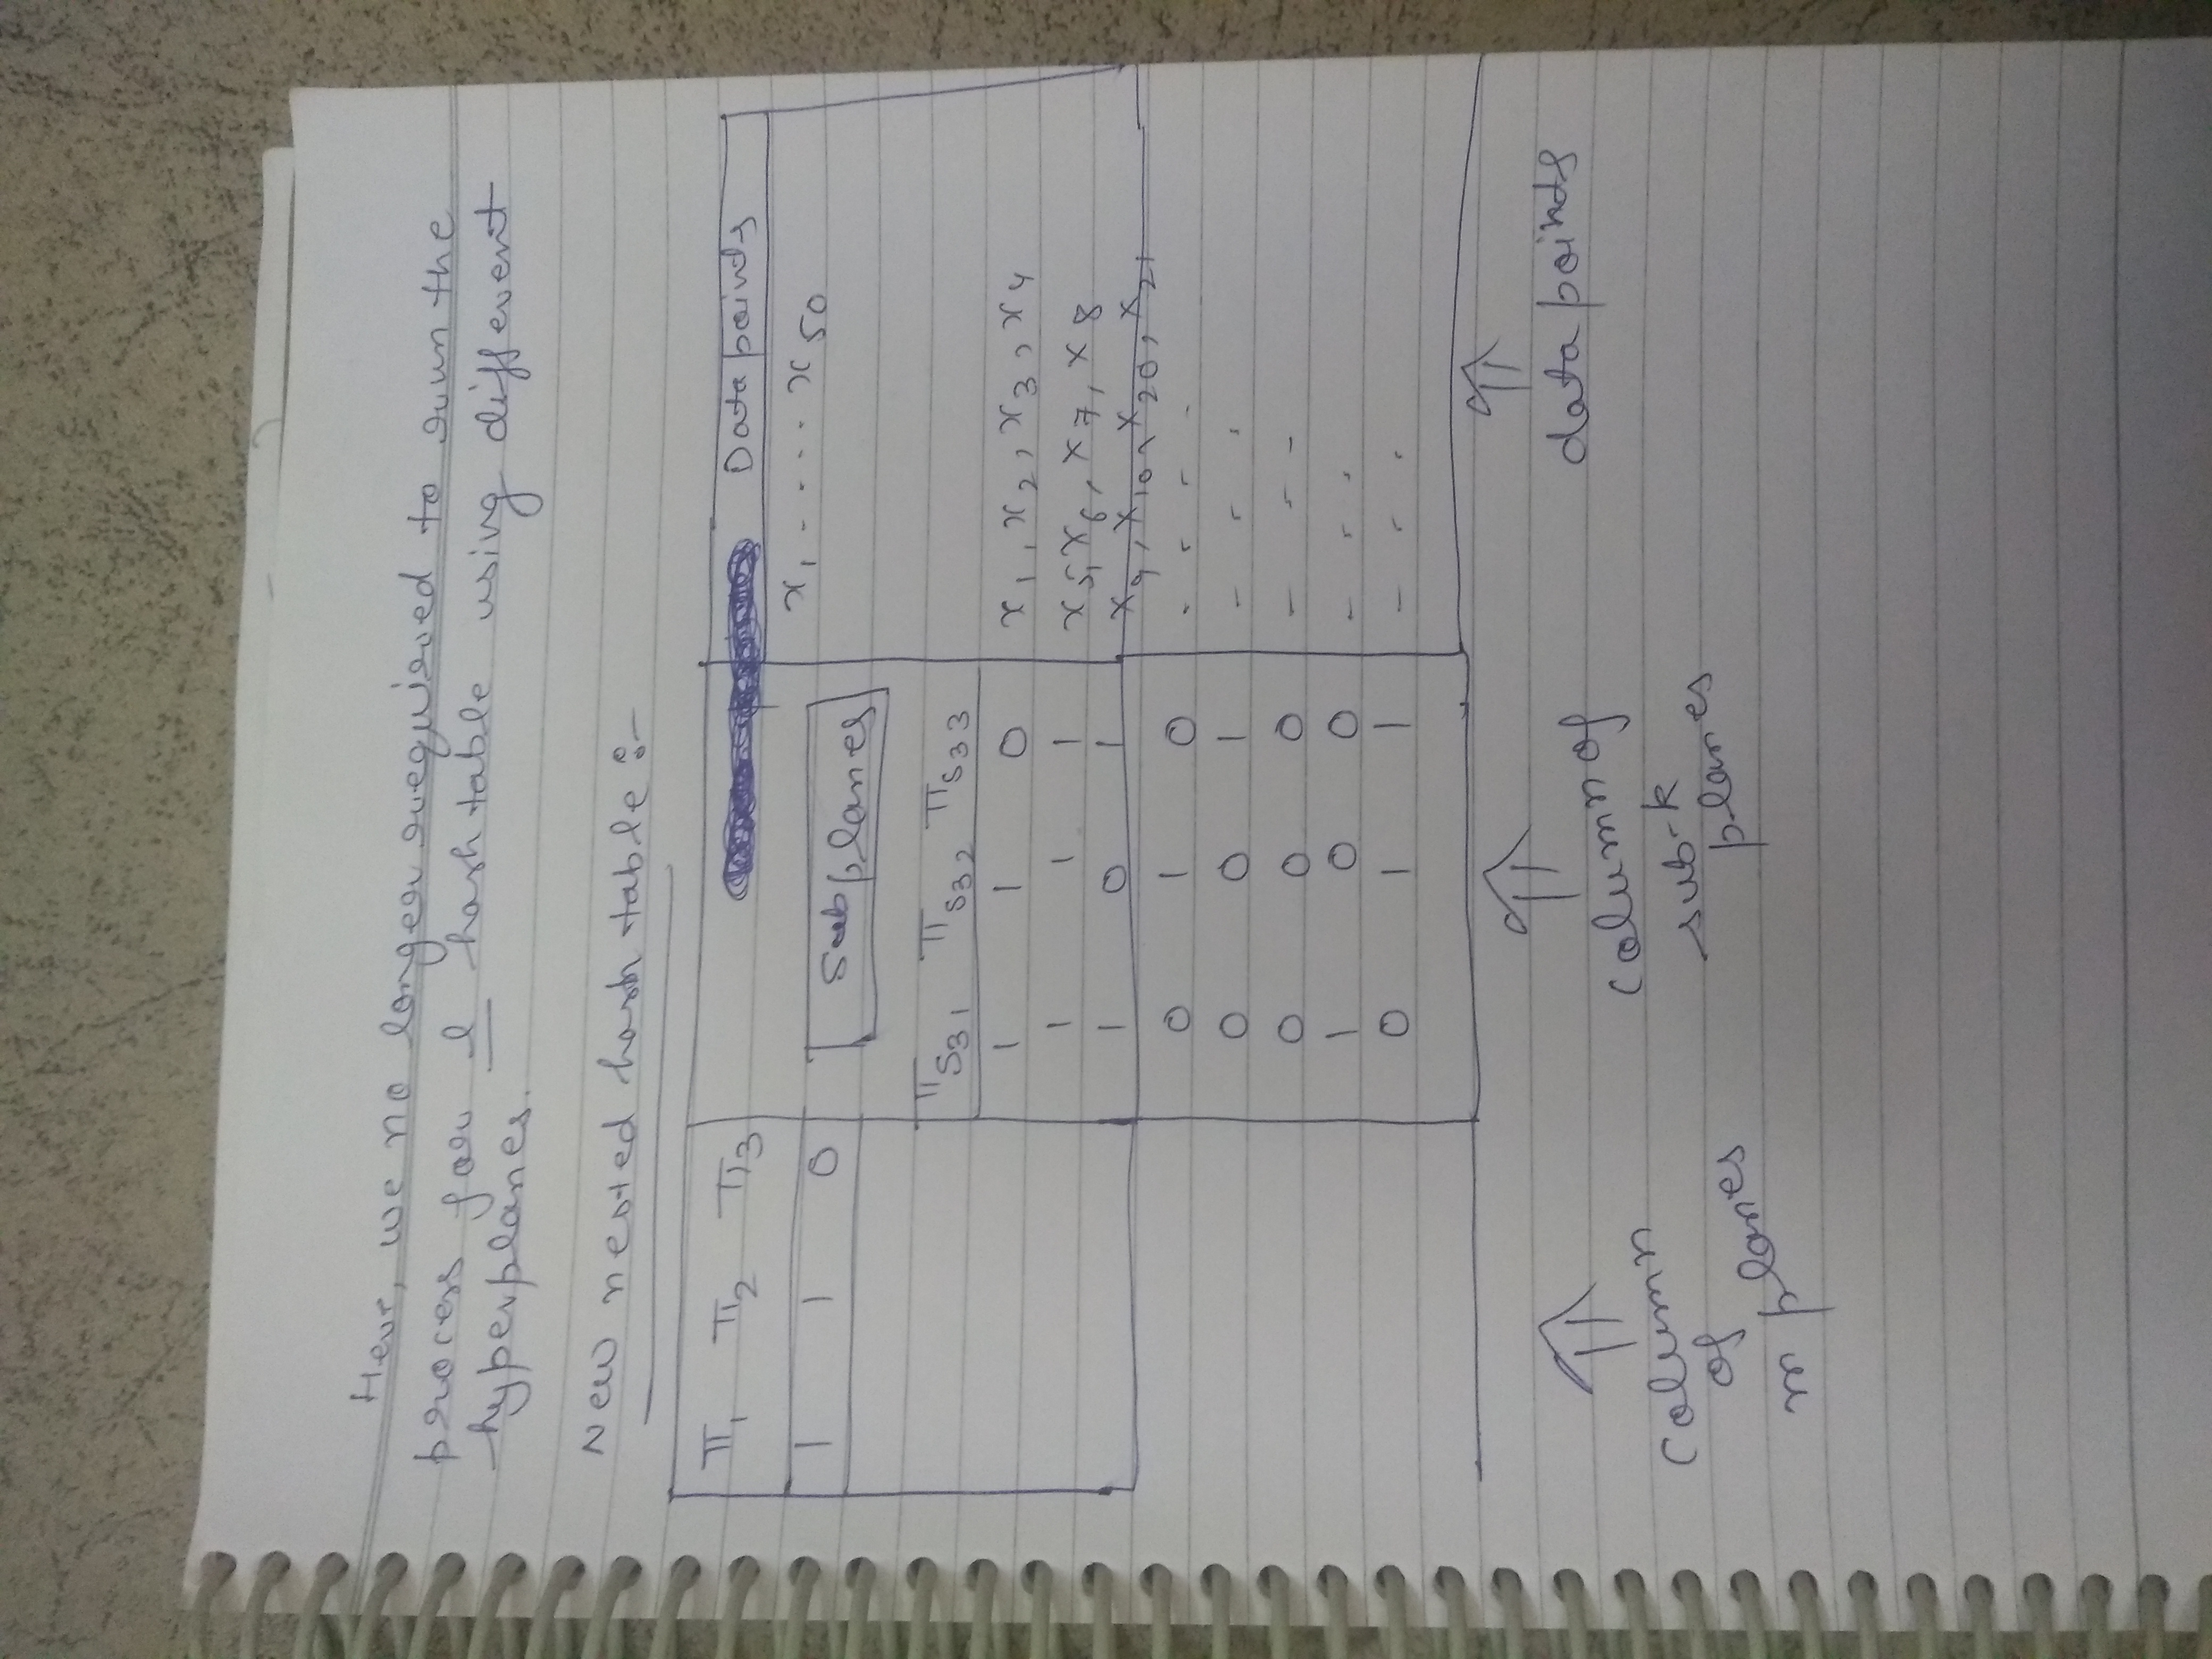 Here, we no longer required to run the
process for l hash table using different
hyperplanes.
New nested hash table :-
π1 π2 π3 Data points
1 1 0 x1 ..... x50
Sub planes
πS31 πS32 πS33
1 1 0 x1, x2, x3, x4
1 1 1 x5, x6, x7, x8
1 0 1 x9, x10, x20, x21
0 1 0 - - - -
0 0 1 - - -
0 0 0 - - -
1 0 0 - - -
0 1 1 - - -
column of m planes
column of sub-k planes
data points